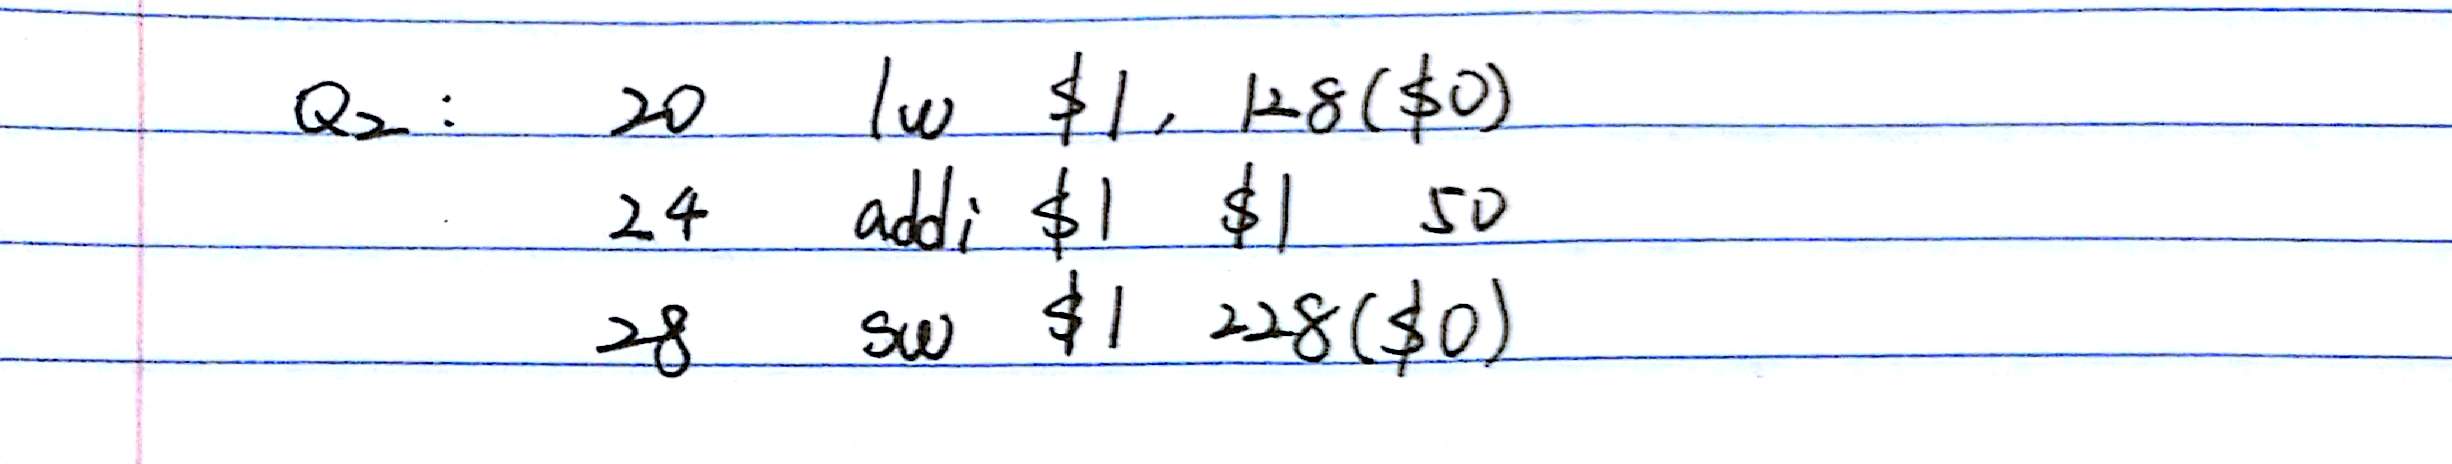 Q2: 20 lw $1, 128($0)
24 addi $1 $1 50
28 sw $1 228($0)